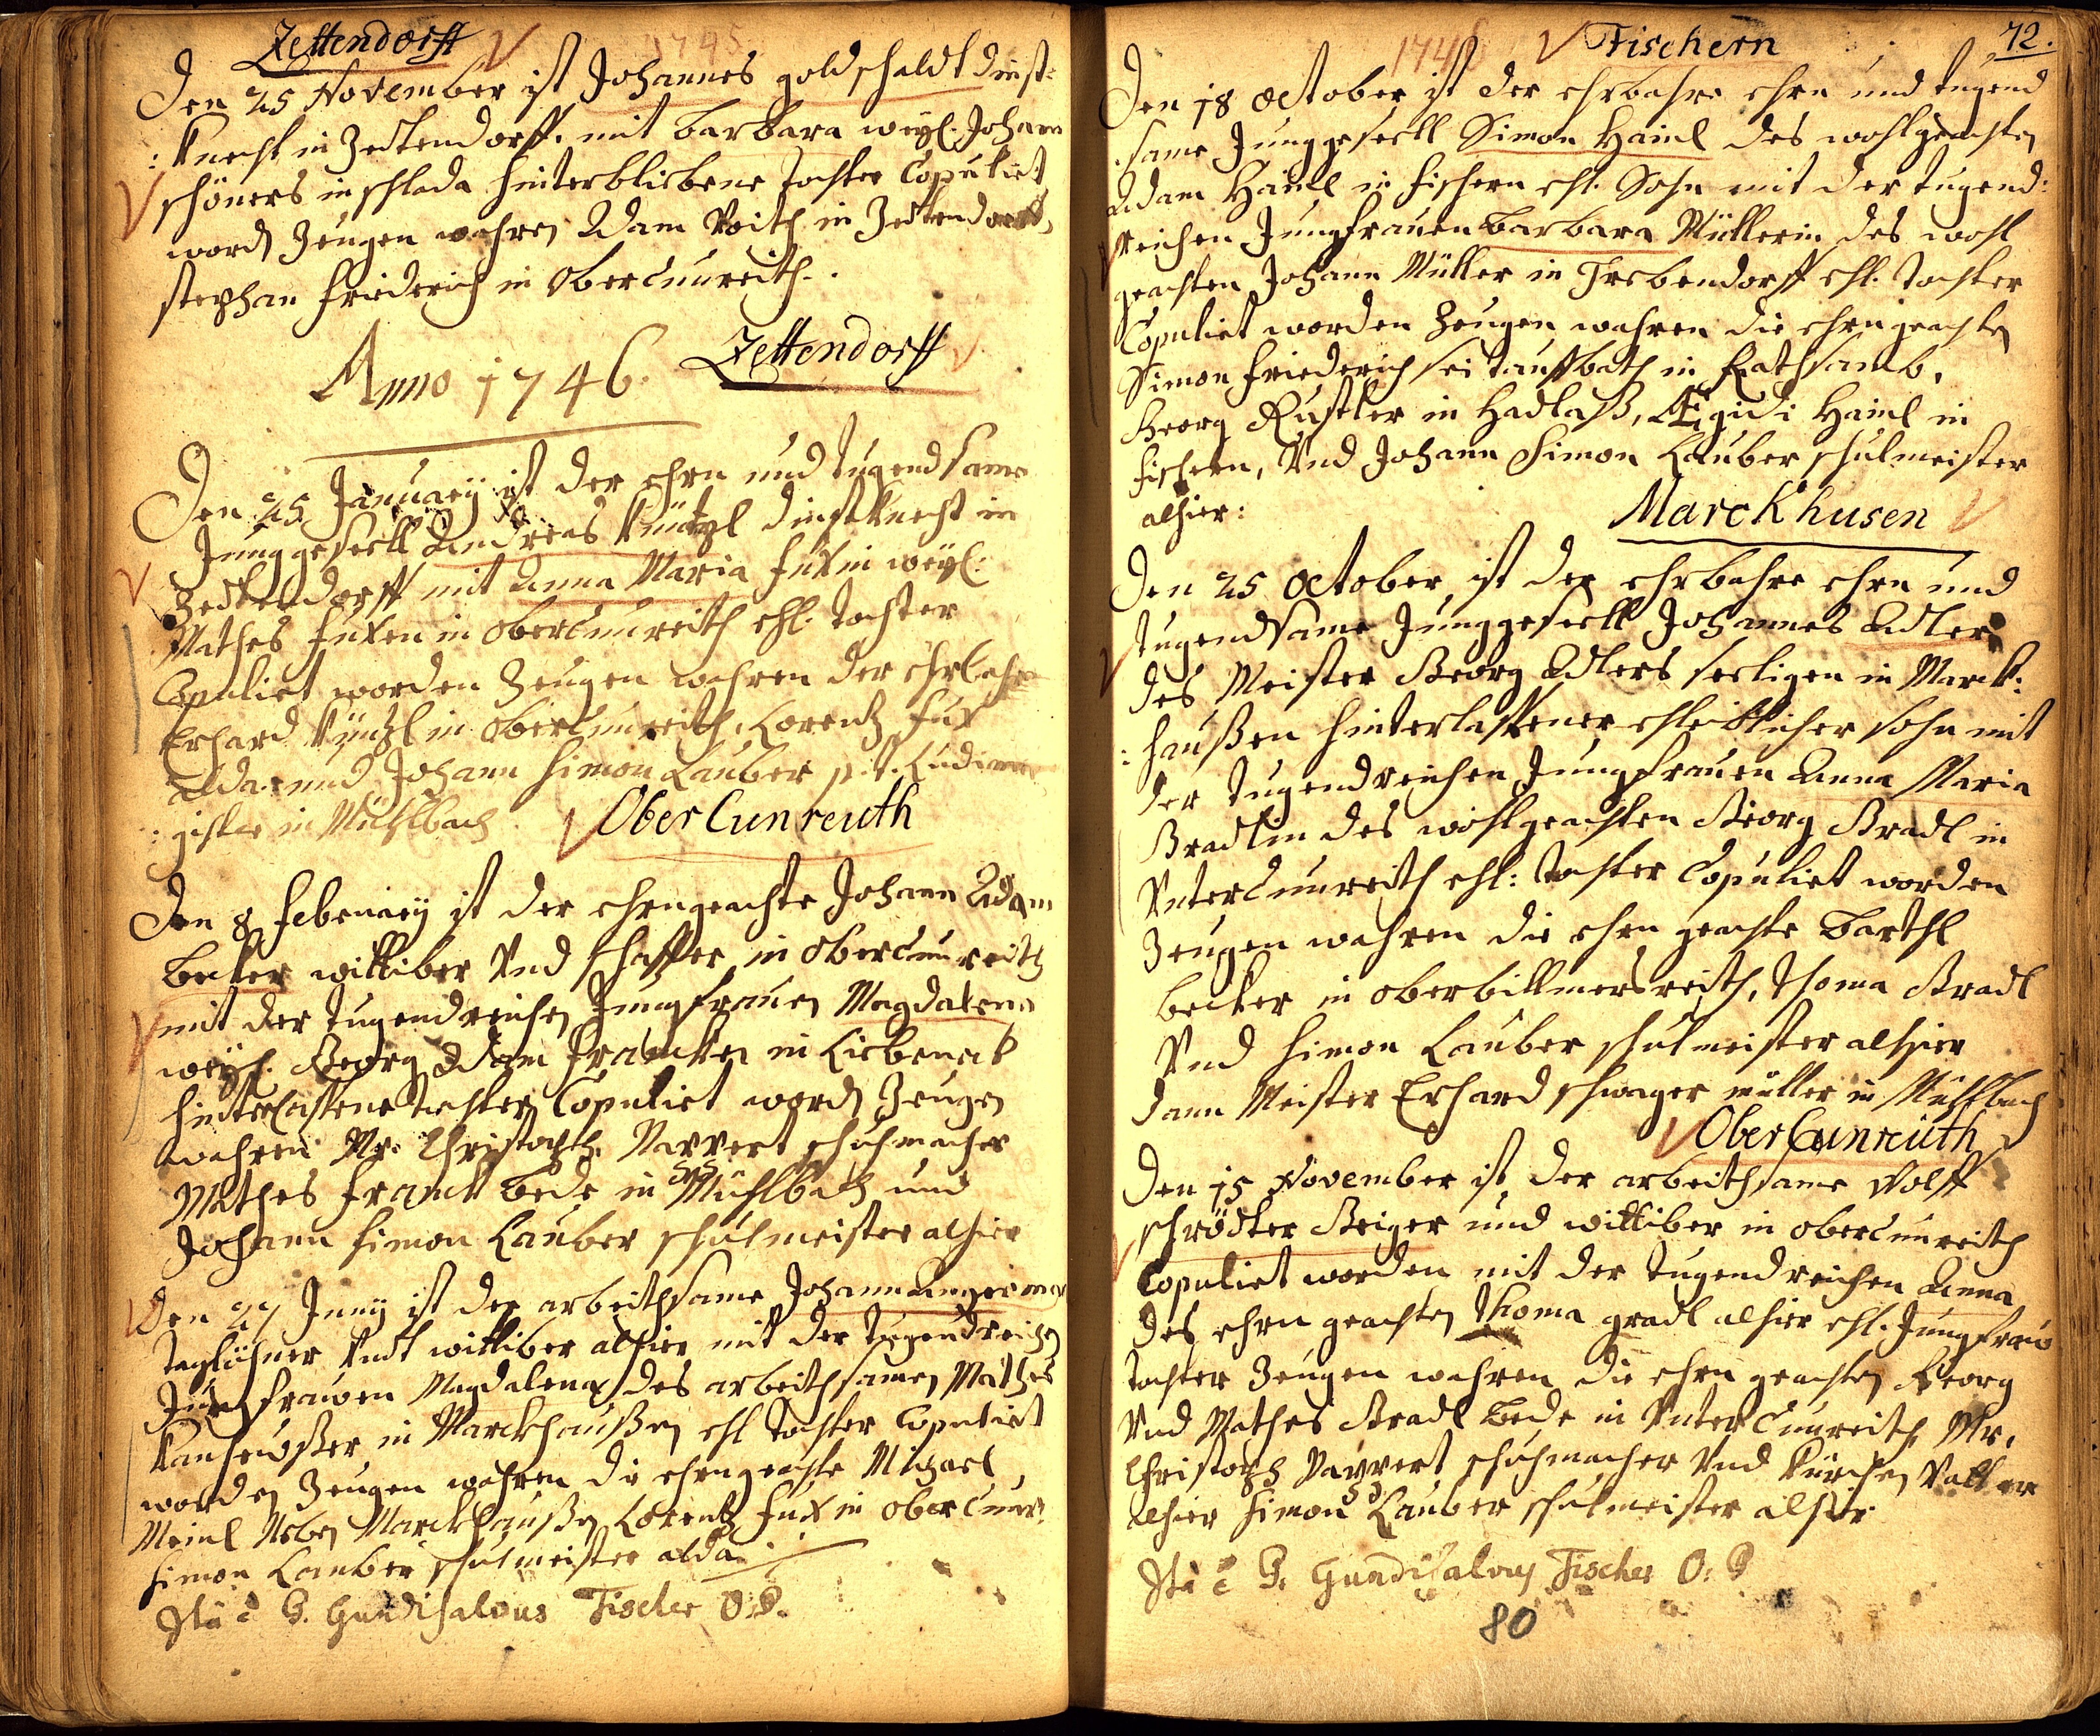 Zettendorff
1745
Den 25 November ist Johannes goldschaldt dinst=
: knecht in Zettendorff. mit barbara weyl. Johann
schöners in schlada hinterbliebene tochter Copuliet
word Zeugen wahren Adam Voith in Zettendorff,
stephan friederich in Obercunreith.
Anno 1746. Zettendorff
Den 25 January ist der ehrn und tugendsame
Junggesell Andreas Küntzl dinstknecht in
Zettendorff mit Anna Maria fuxin weyl:
Mathes fuxen in obercunreith ehl. tochter
Copuliet worden Zeugen wahren der Ehrbahre
Erhard Küntzl in obercunreith, Lorentz fux
alda. und Johann Simon Lauber p. t. Ludima
: gister in Mühlbach
Ober Cunreuth
Den 8 february ist der ehrngeachte Johann Adam
becker wittiber Vnd schaffer in obercunreith
mit der tugendreichen Jungfrauen Magdalena
weyl. Georg Adam francken in Liebeneck
hinterlassene tochter Copuliet word Zeugen
wahren Mr. Christoph schuhmacher
Mathes franck bede in Mühlbach und
Johann Simon Lauber schulmeister alhier
Den 27 Juny ist der arbeithsame Johann
taglöhner Vndt wittiber alhier mit der tugendreichen
Jungfrauen Magdalena des arbeithsamen Mathes
in Marckhaußen ehl tochter Copuliet
worden Zeugen wahren die ehrngeachte Michael
Meinl Neben Marckhaußen Lorentz fux in obercunr.
Simon Lauber schulmeister alda
Ita e P. Gundisalvus Fischer O. P.
72.
1746
Fischern
Den 18 October ist der ehrbahre ehrn und tugend
same Junggesell Simon Hainl des wohlgeachten
Adam Hainl in fischern ehl. Sohn mit der tugend:
reichen Jungfrauen barbara Müllerin des wohl
geachten Johann Müller in Trebendorff ehl. tochter
Copuliet worden Zeugen wahren die ehrngeachten
Simon friederich in Rathsamb,
Georg Rustler in Hadlaß, Ægidi Hainl in
fischern, Vnd Johann Simon Lauber schulmeister
alhier:
Marckhusen
Den 25 October ist der ehrbahre ehrn und
tugendsame Junggesell Johannes Adler
des Meister Georg Adlers seeligen in Marck:
: haußen hinterlassener ehleiblicher sohn mit
der tugendreichen Jungfrauen Anna Maria
Gradlin des wohlgeachten Georg Gradl in
Vntercunreith ehl: tochter Copuliet worden
Zeugen wahren die ehrn geachte barthl
becker in oberbillmersreith, thoma Gradl
Vnd Simon Lauber schulmeister alhier
dann Meister Erhard schwager müller in Mühlbach
Ober Cunreüth
Den 15 November ist der arbeithsame Wolff
schrödter Geiger und wittiber in obercunreith
Copuliet worden mit der tugendreichen Anna
des ehrn geachten thoma gradl alhier ehl. Jungfrau
tochter Zeugen wahren die ehrn geachten Georg
Vnd Mathes Gradl bede in Vntercunreith, Mr.
Christoph schuhmacher Vnd Kürchen Vatter
alhier Simon Lauber schulmeister alhier
Ita e P. Gundisalvus Fischer O. P
80